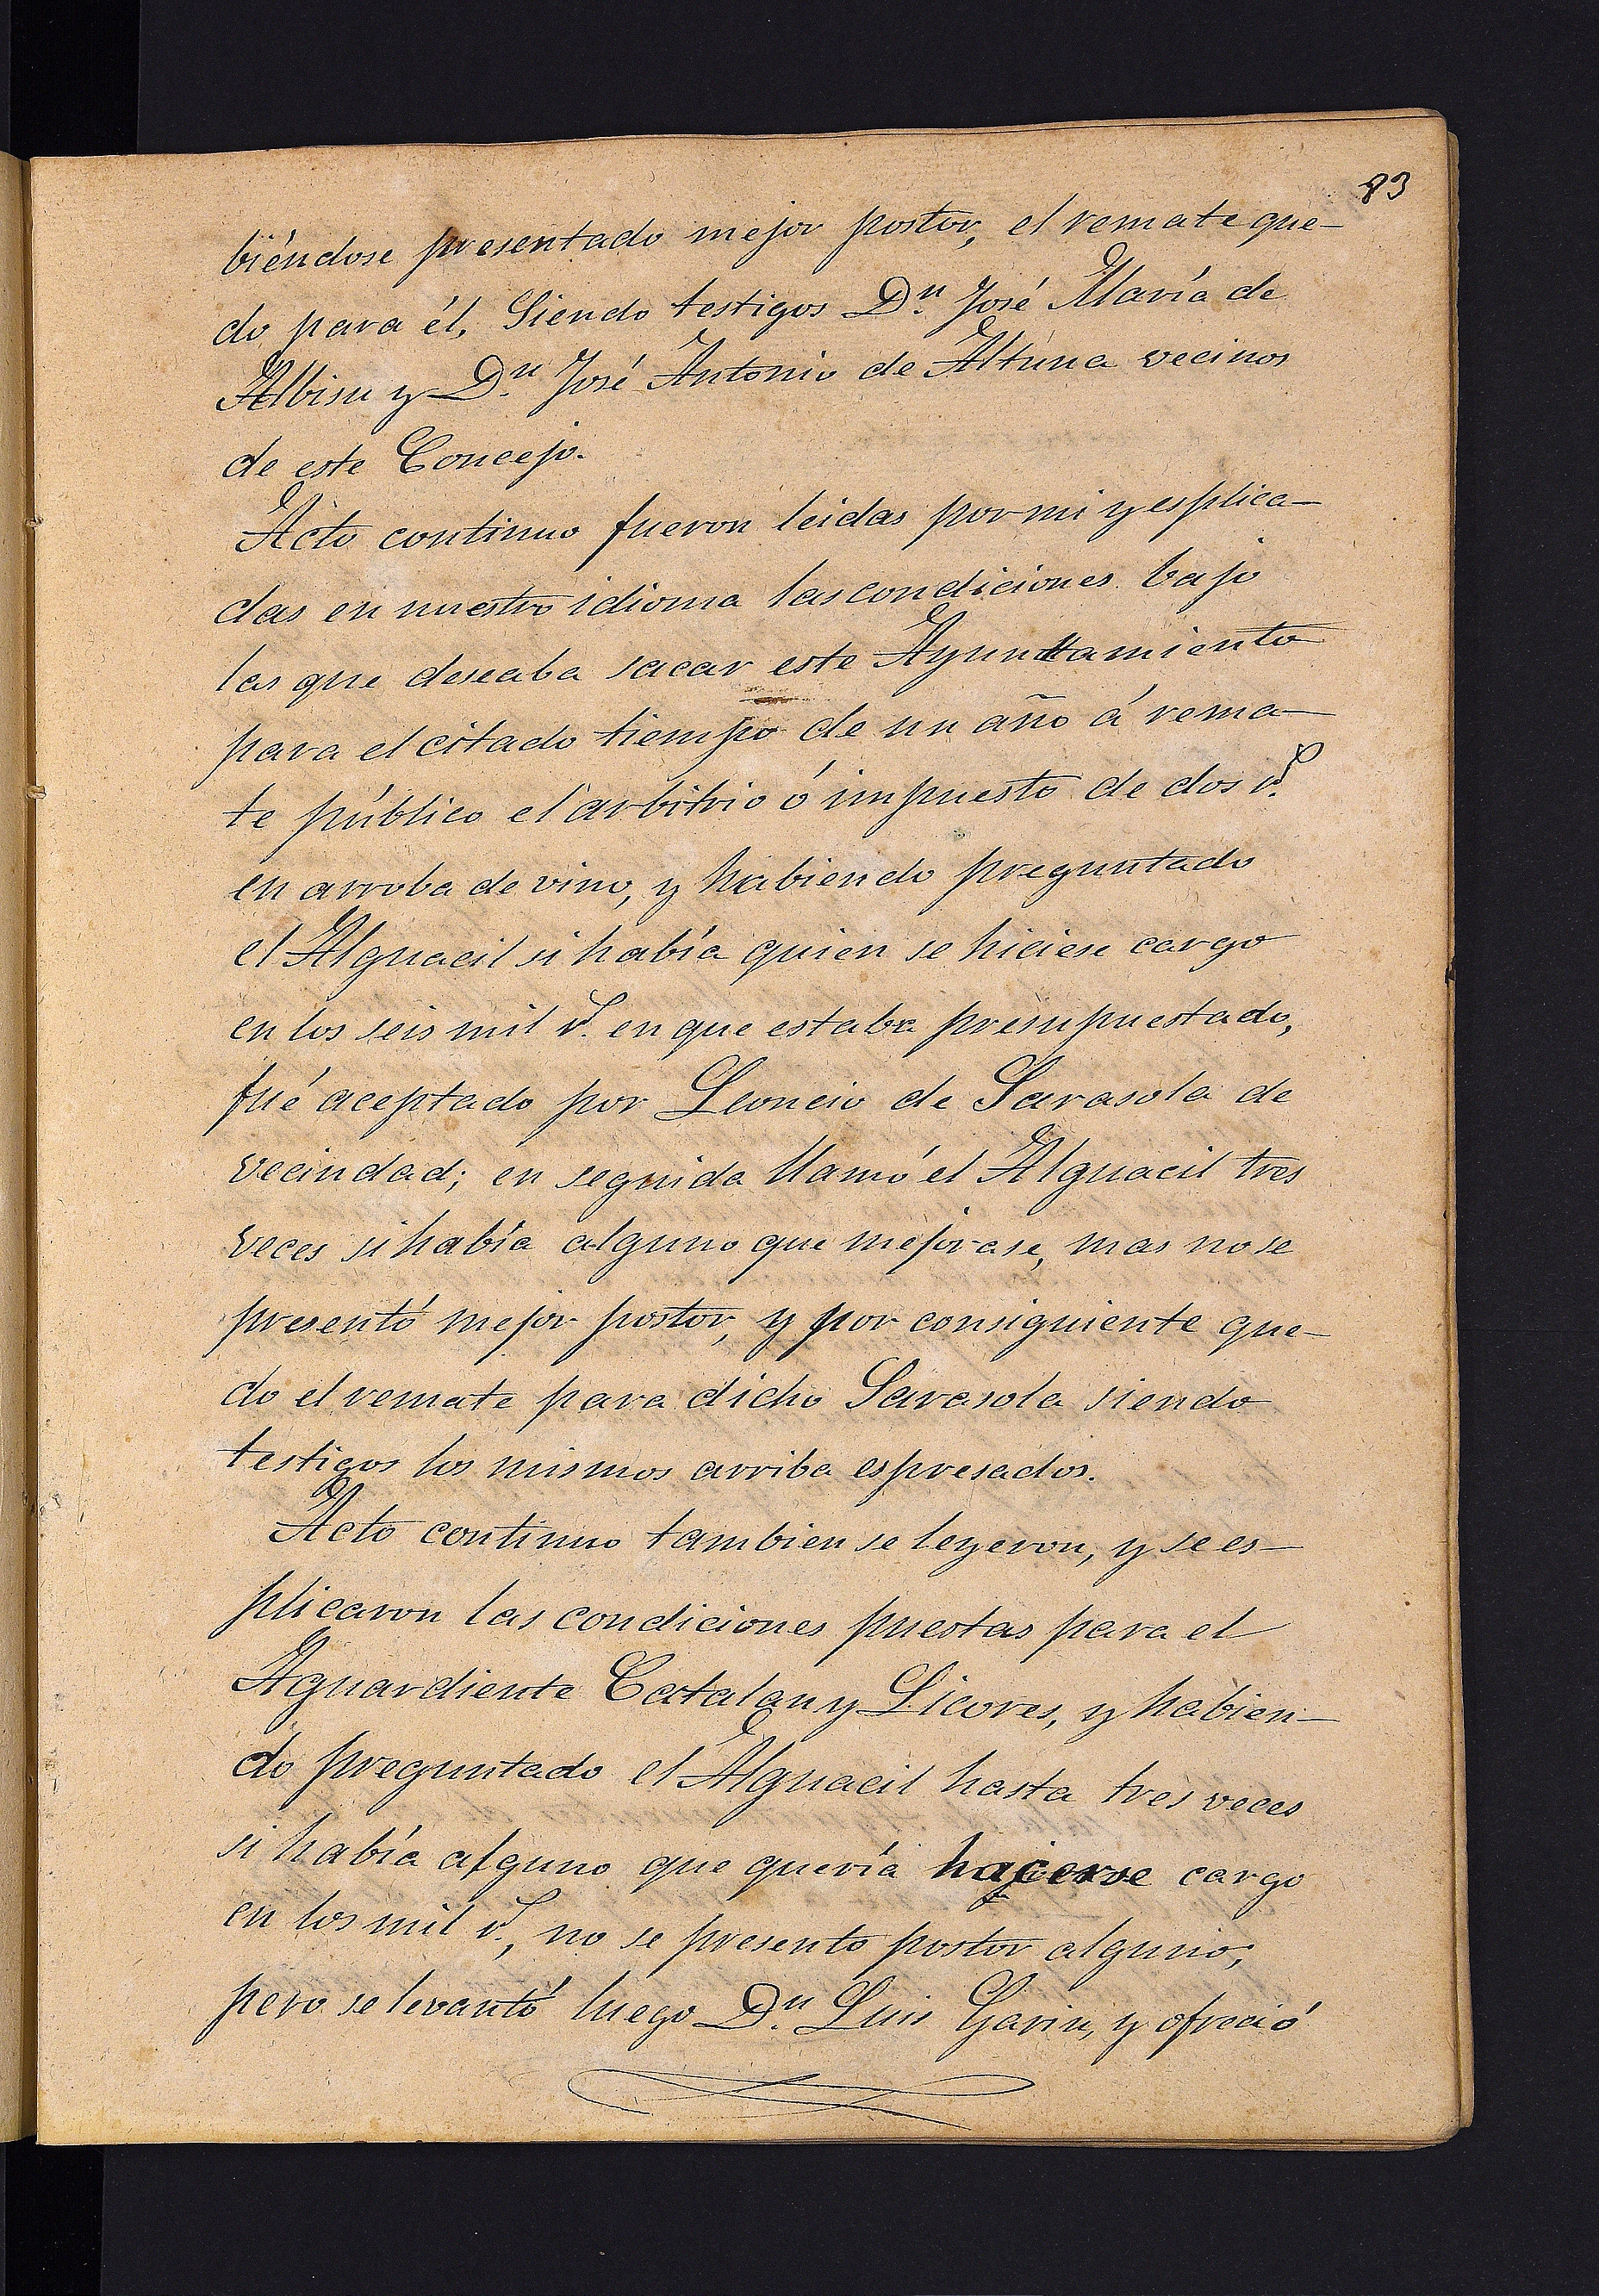 83
biéndose presentado mejor postor, el remate que-
do para él, Siendo testigos Dn. José María de
Albisu y Dn. José Antonio de Altuna vecinos
de este Concejo.
Acto continuo fueron leidas por mi y esplica-
das en nuestro idioma las condiciones bajo
las que deseaba sacar este Ayuntamiento
para el citado tiempo de un año á rema-
te público el arbitrio ó impuesto de dos rs.
en arroba de vino, y habiendo preguntado
el Alguacil si había quien se hiciese cargo
en los seis mil rs. en que estaba presupuestado,
fué aceptado por Leoncio de Sarasola de
vecindad; en seguida llamó el Alguacil tres
veces si había alguno que mejorase, mas no se
presentó mejor postor, y por consiguiente que-
do el remate para dicho Sarasola siendo
testigos los mismos arriba espresados.
Acto continuo tambien se leyeron, y se es-
plicaron las condiciones puestas para el
Aguardiente Catalan y Licores, y habien-
do preguntado el Alguacil hasta tres veces
si había alguno que quería hacerse cargo
en los mil rs., no se presento postor alguno;
pero se levantó luego Dn. Luis Garin, y ofreció